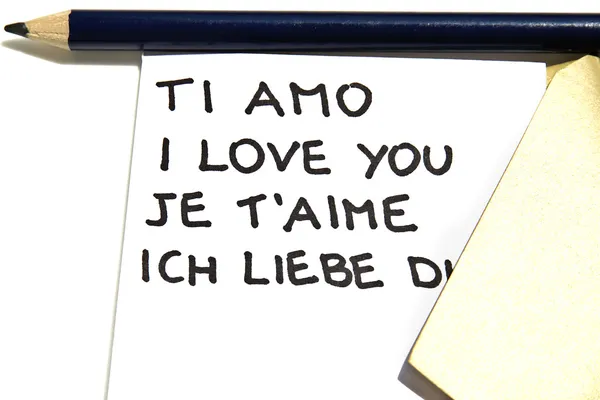 TI AMO
I LOVE YOU
JE T'AIME
ICH LIEBE